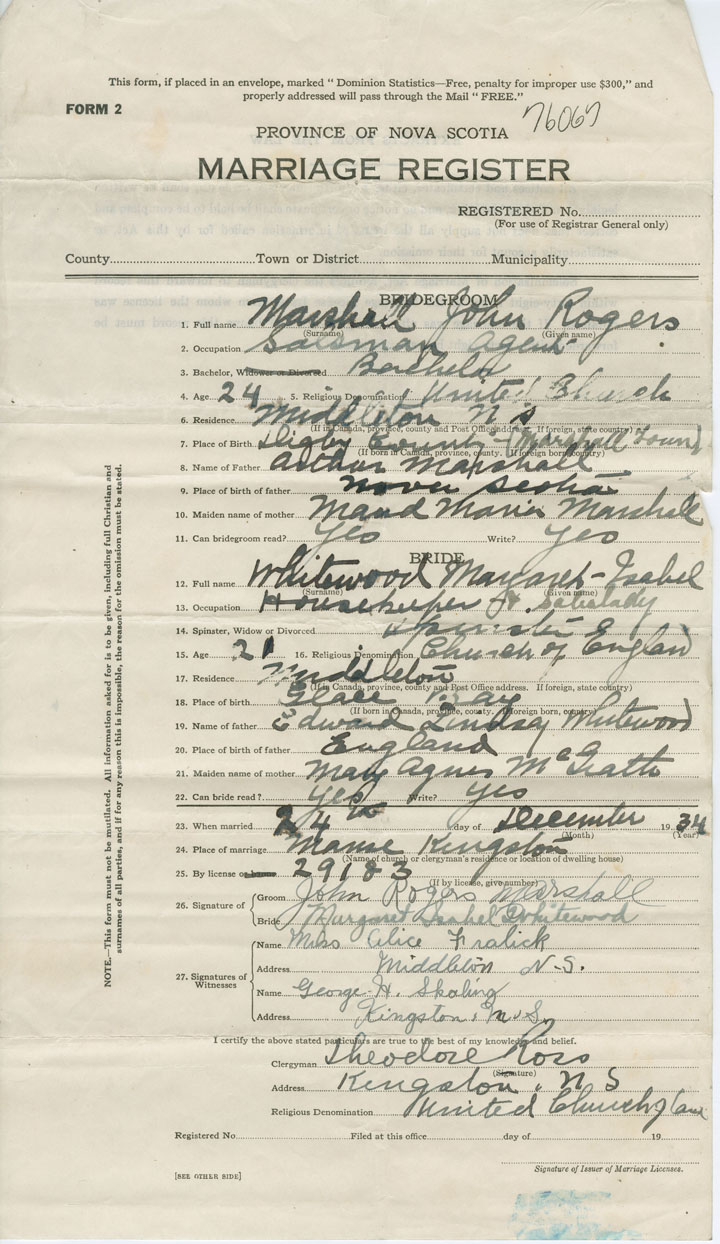 This form, if placed in an envelope, marked "Dominion Statistics—Free, penalty for improper use $300," and
properly addressed will pass through the Mail "FREE."
FORM 2
76067
PROVINCE OF NOVA SCOTIA
MARRIAGE REGISTER
REGISTERED No.
(For use of Registrar General only)
County Town or District Municipality
BRIDEGROOM
1. Full name Marshall John Rogers
(Surname) (Given name)
2. Occupation Salsman Agent
3. Bachelor, Widower or Divorced Bachelor
4. Age 24 5. Religious Denomination United Church
6. Residence Middleton N S
(If in Canada, province, county and Post Office address. If foreign, state country)
7. Place of Birth Digby County (Marshall Town)
(If born in Canada, province, county. If foreign born, country)
8. Name of Father Arthur Marshall
9. Place of birth of father Nova Scotia
10. Maiden name of mother Maud Maria Marshall
11. Can bridegroom read? Yes Write? Yes
BRIDE
12. Full name Whitewood Margaret-Isabel
(Surname) (Given name)
13. Occupation Housekeeper & Saleslady
14. Spinster, Widow or Divorced Spinster
15. Age 21 16. Religious Denomination Church of England
17. Residence Middleton
(If in Canada, province, county and Post Office address. If foreign, state country)
18. Place of birth Glace Bay
(If born in Canada, province, county. If foreign born, country)
19. Name of father Edward Lindsay Whitewood
20. Place of birth of father England
21. Maiden name of mother Mary Agnes McGrath
22. Can bride read? Yes Write? Yes
23. When married 24th day of December 1934
(Month) (Year)
24. Place of marriage Manse Kingston
(Name of church or clergyman's residence or location of dwelling house)
25. By license or 29183
(If by license, give number)
26. Signature of Groom John Rogers Marshall
Bride Margaret Isabel Whitewood
27. Signatures of Witnesses
Name Miss Alice Fralick
Address Middleton N.S.
Name George H. Skaling
Address Kingston, N.S.
I certify the above stated particulars are true to the best of my knowledge and belief.
Clergyman Theodore Ross
(Signature)
Address Kingston, N S
Religious Denomination United Church of Can
Registered No. Filed at this office day of 19
Signature of Issuer of Marriage Licenses.
[SEE OTHER SIDE]
NOTE.—This form must not be mutilated. All information asked for is to be given, including full Christian and
surnames of all parties, and if for any reason this is impossible, the reason for the omission must be stated.